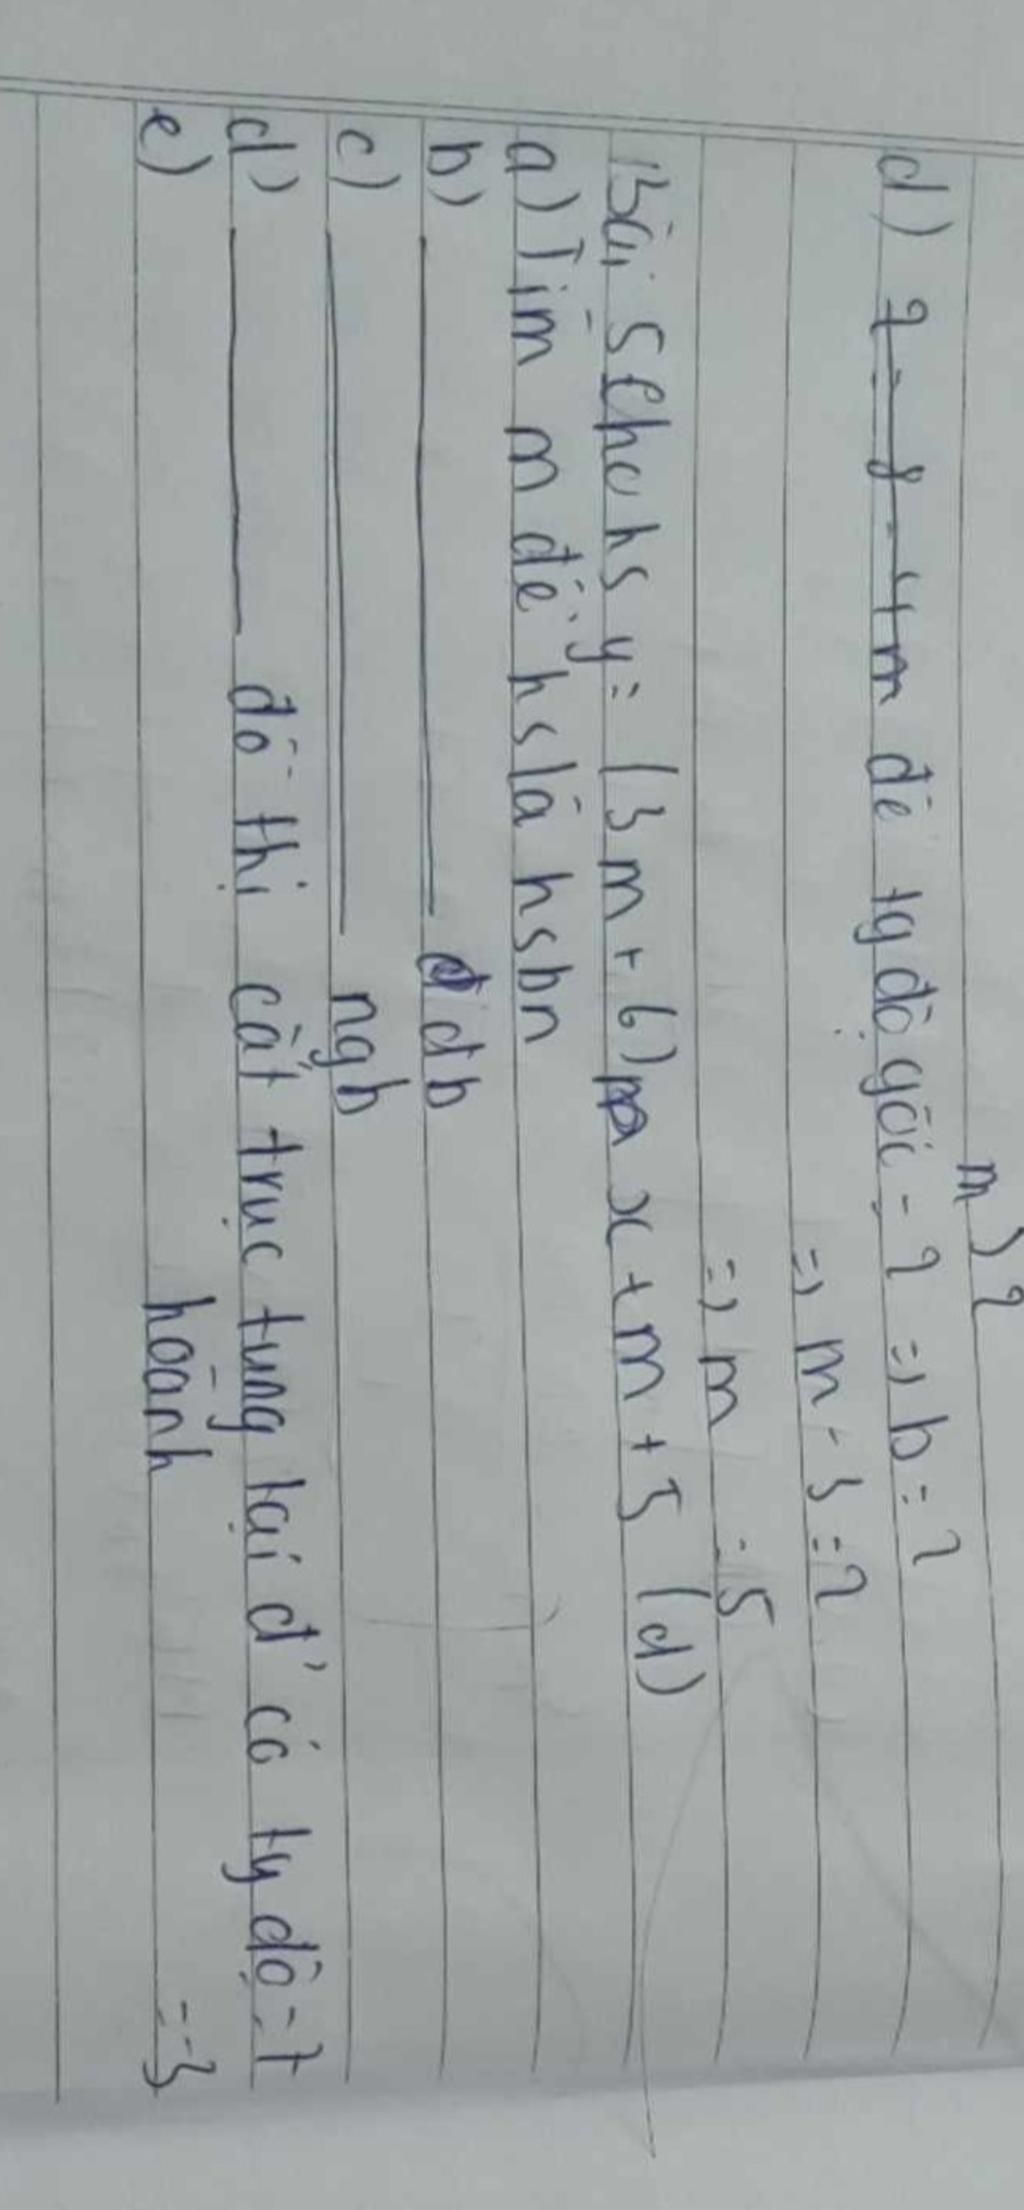 m > 2
d) để tg độ gốc = 2 => b = 2
=> m - 3 = 2
=> m = 5
Bài 5 Cho hs y = (3m + 6) x + m + 5 (d)
a) Tìm m để hs là hsbn
b) ——— đb
c) ——— ngb
d) ——— đồ thị cắt trục tung tại đ' có ty độ = 7
e) hoành = -3